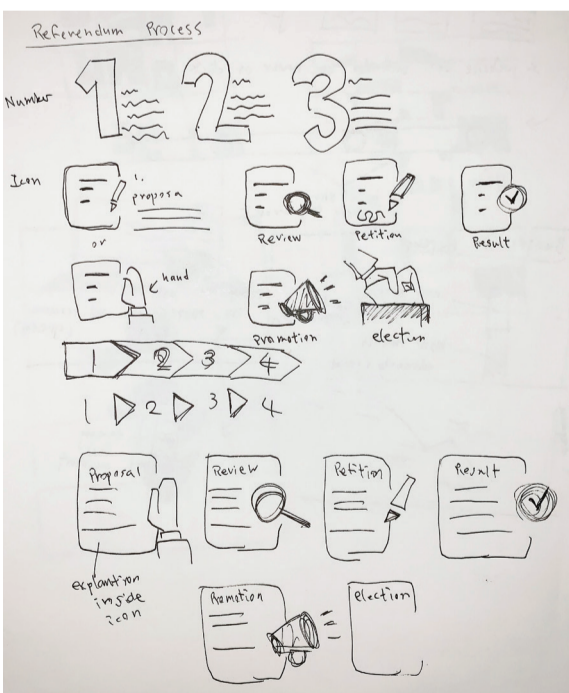 Referendum Process
Number
1 2 3
Icon
1.
proposa
or
Review
Petition
Result
hand
Promotion
election
1 2 3 4
1 2 3 4
Proposal
Review
Petition
Result
explantion
inside
icon
Promotion
election